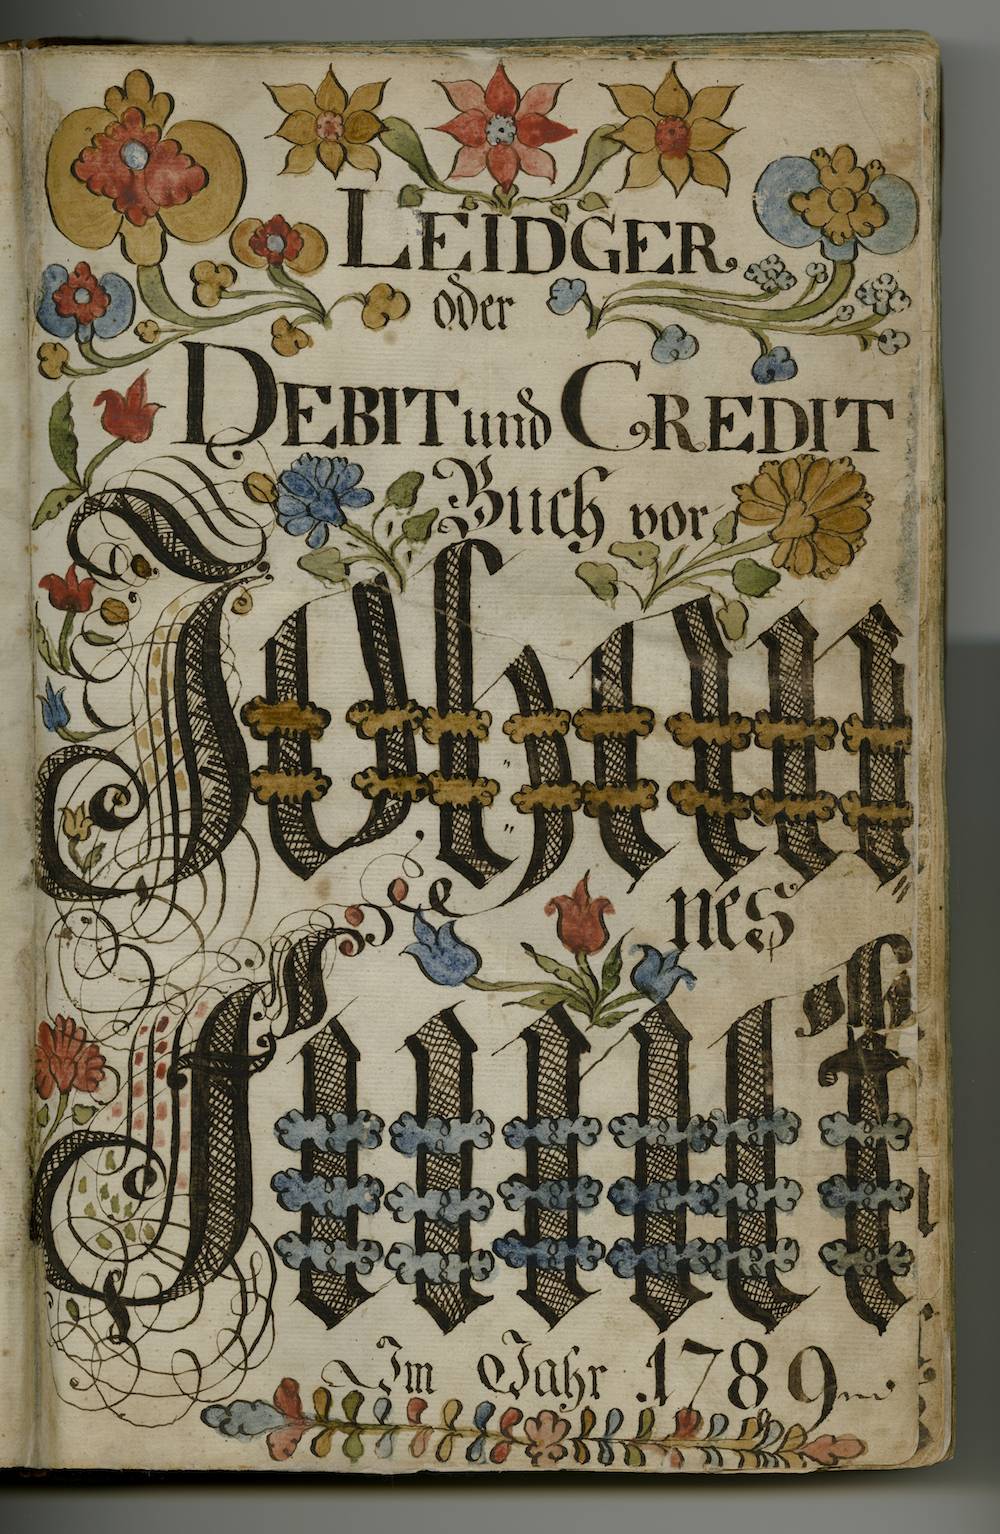 LEIDGER
oder
DEBIT und CREDIT
Buch vor
Johan=
nes
Funck
Im Jahr 1789